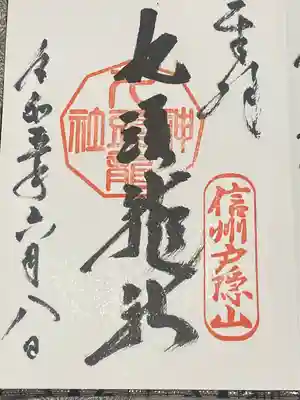 奉拝
信州戸隠山
九頭龍社
九頭龍神社
令和五年六月八日